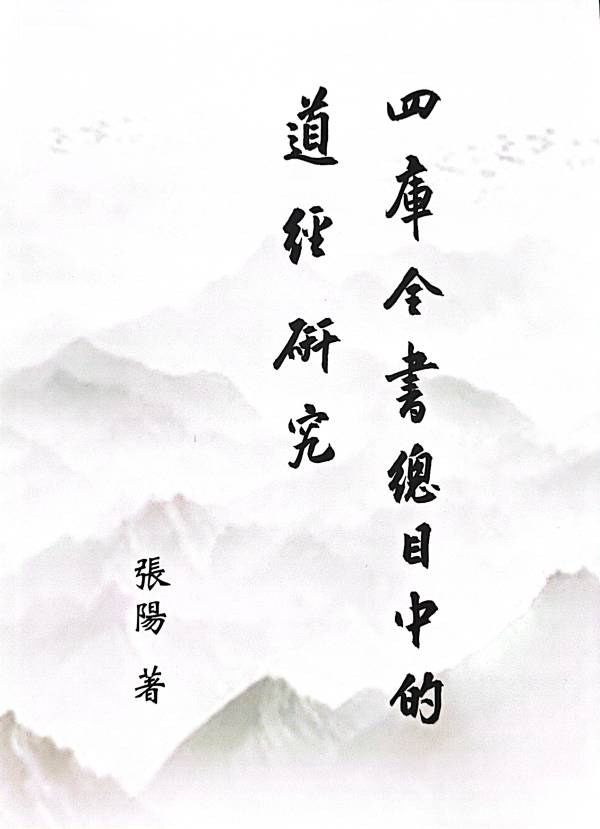 四庫全書總目中的
道經研究
張陽 著